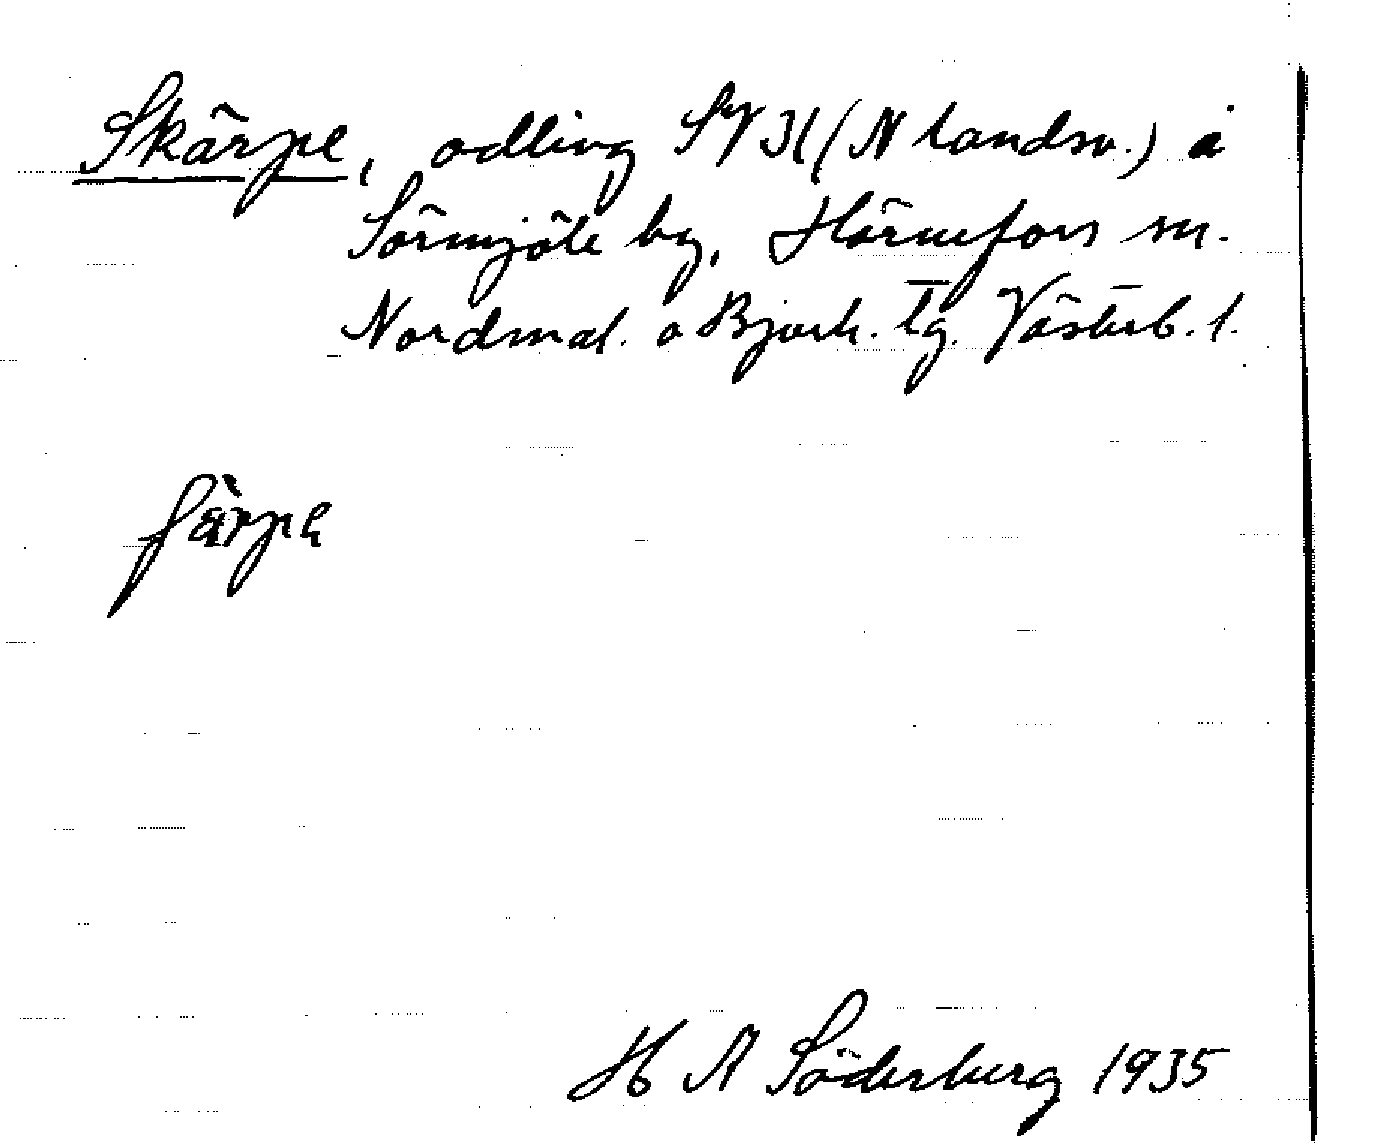 Skärpe, odling SV 31 (N landsv.) å
Sörmjöle by, Hörnefors sn.
Nordmal. o Bjurh. tg. Västerb. l.
ʃärpe
H A Söderberg 1935